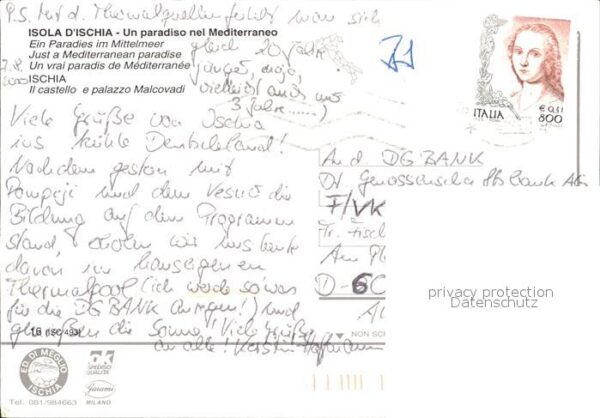 P.S. Auf d. Thermalquellen fühlt man sich
ISOLA D'ISCHIA - Un paradiso nel Mediterraneo
Ein Paradies im Mittelmeer
gleich 20 Jahre
Just a Mediterranean paradise
Un vrai paradis de Méditerranée
jünger, naja,
ISCHIA
vielleicht auch nur
Il castello e palazzo Malcovadi
3 Jahre......)
ITALIA
€ 0,41
800
Viele Grüße von Ischia
ins kühle Deutschland!
Nachdem gestern mit
Pompeji und dem Vesuv die
Bildung auf dem Programm
stand, erholen wir uns heute
davon im hauseigenen
Thermalpool (ich werde sowas
für die DG BANK anregen!) und
genießen die Sonne! Viele Grüße
an alle! Kerstin Hofmann
And DG BANK
Dt. Genossenschaftsbank
F/VK
Fr. Fisch
Am Pl
D-60
privacy protection
Datenschutz
16 (ISC 493)
NON SCR
ED. DI MEGLIO
ISCHIA
Tel. 081/984663
OK
QUALITÀ
Garami
MILANO